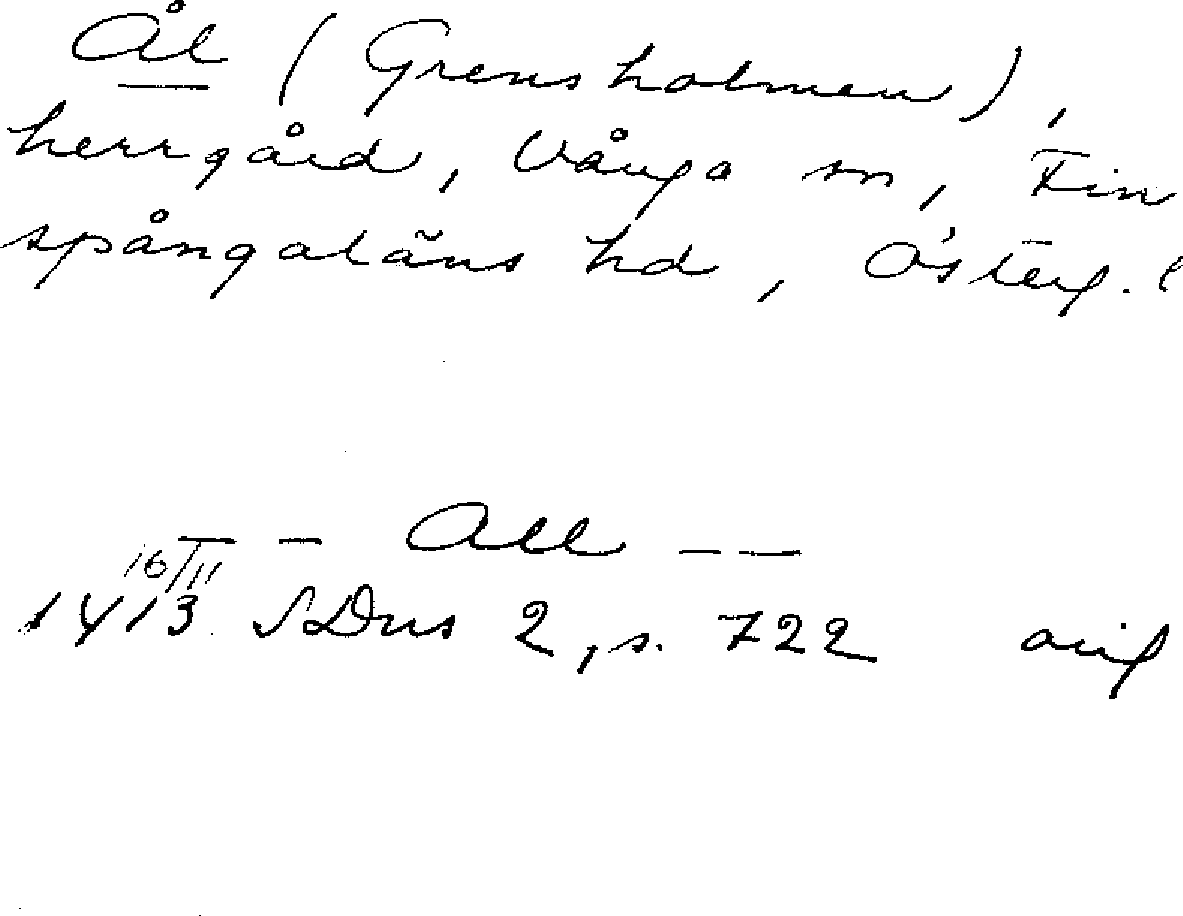 Ål (Grensholmen),
herrgård, Vånga sn, Fin
spångaläns hd, Österg. l
– – All – –
16/11
1413 SDns 2, s. 722 orig